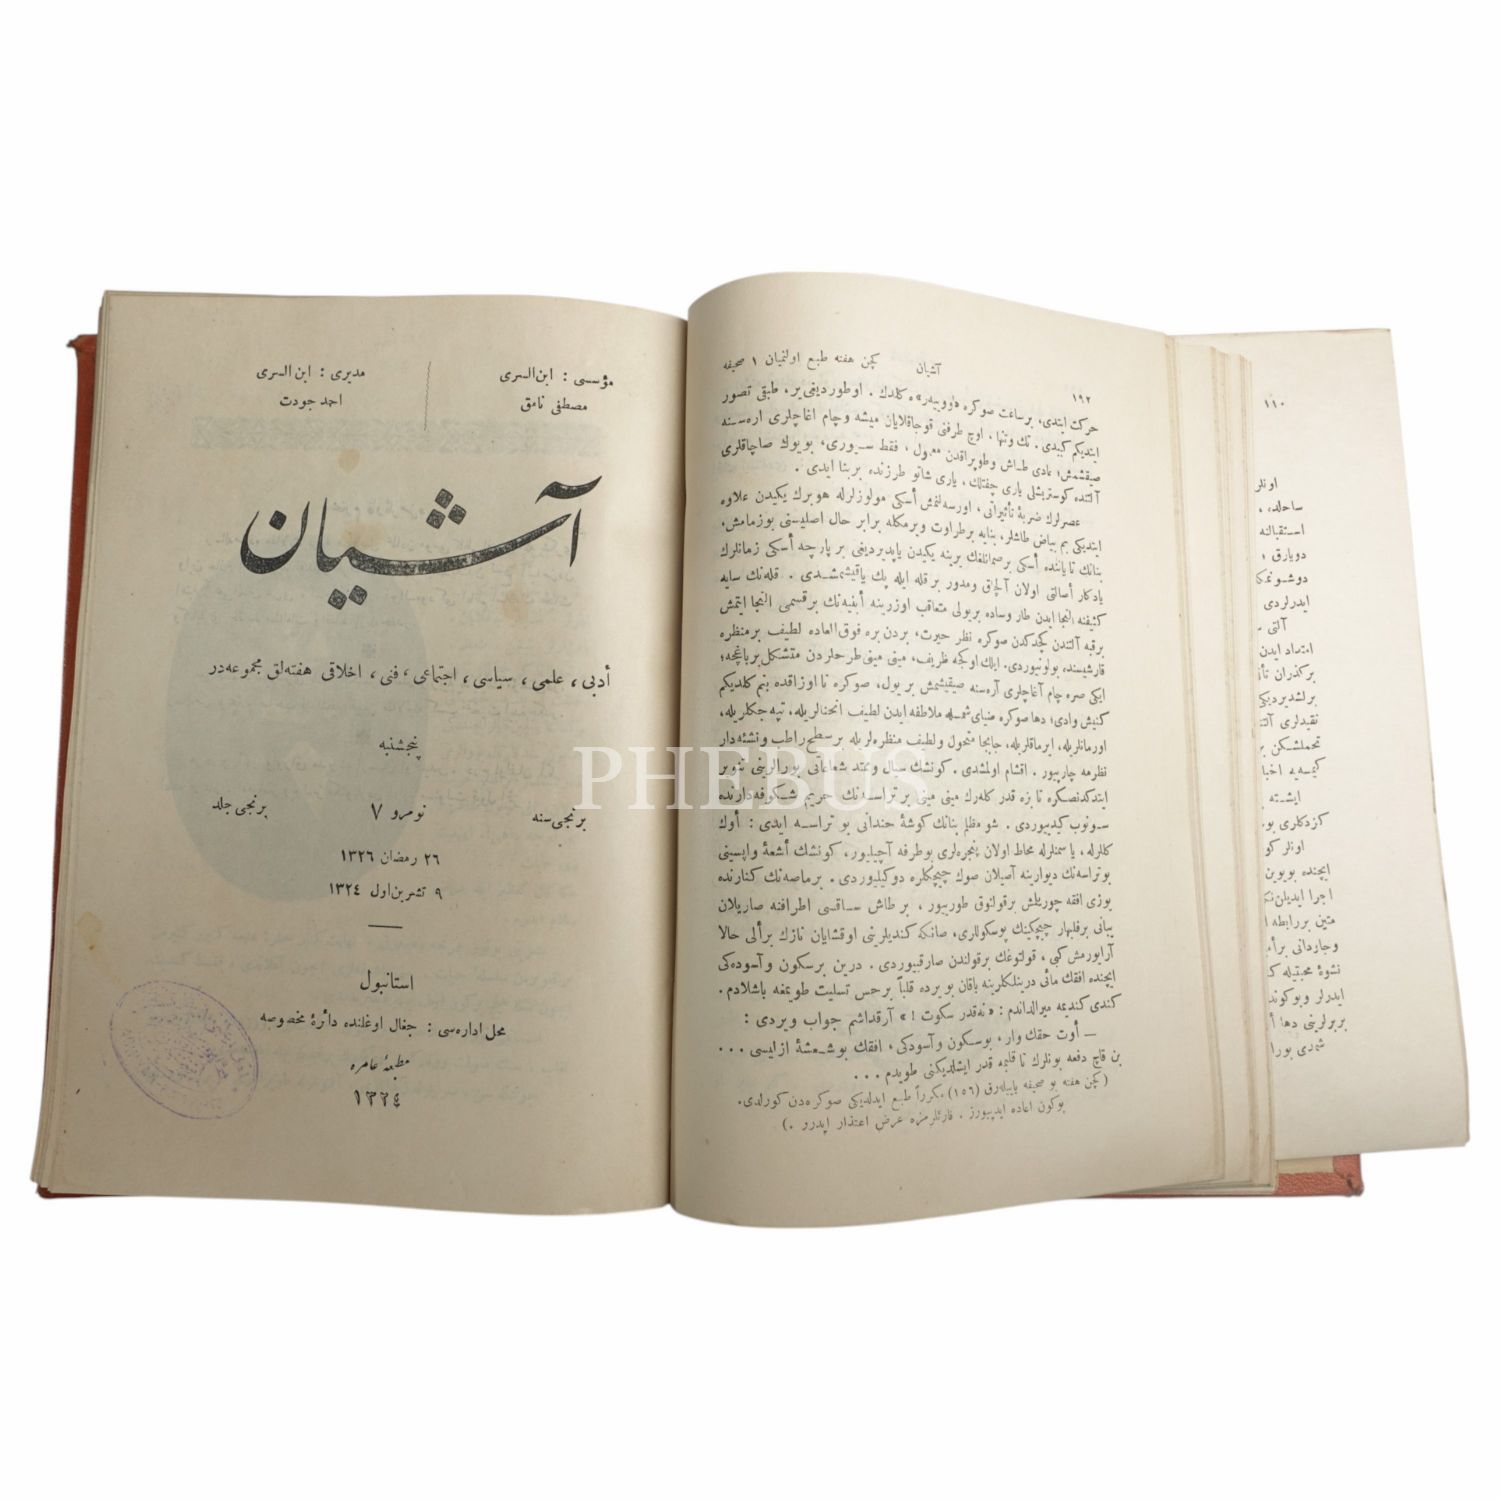 مؤسسی : ابن السری
مصطفی نامق
مدیری : ابن السری
احمد جودت
آشیان
أدبی ، علمی ، سیاسی ، اجتماعی ، فنی ، اخلاقی هفته‌لق مجموعه‌در
پنجشنبه
برنجی سنه نومرو ٧ برنجی جلد
٢٦ رمضان ١٣٢٦
٩ تشرین اول ١٣٢٤
استانبول
محل اداره‌سی : جغال اوغلنده دائرهٔ مخصوصه
مطبعهٔ عامره
١٣٢٤
١٩٢ آشیان کچن هفته طبع اولنمیان ١ صحیفه
حرکت ایتدی، بر ساعت صوکره کلدك . اوطوردیغی یر، طبقی تصور
ایتدیکم کبیدی . تك وتنها ، اوچ طرفنی قوجاقلایان میشه وچام اغاچلری اره‌سنه
صیقیشمش؛ عادی طاش وطوپراقدن معمول ، فقط سوری، بویوك صاچاقلری
آلتنده کوستریشلی یاری چفتلك ، یاری شاتو طرزنده بر بنا ایدی .
عصرلرك ضربهٔ تأثیراتی ، اورسه‌لنمش أسکی مولوزلرله هوبرك یکیدن علاوه
ایتدیکی بم بیاض طاشلر، بنایه بر طراوت ویرمکله برابر حال اصلیسنی بوزمامش،
بنانك تا یاننده أسکی بر صمانلغك یرینه یکیدن یاپدیردیغی بر پارچه أسکی زمانلرك
یادکار أصالتی اولان آلچاق ومدور بر قله ایله پك یاقیشمشدی . قله‌نك سایه
کثیفنه التجا ایدن طار وساده بر یولی متعاقب اوزرینه أبنیه‌نك بر قسمی التجا ایتمش
بر قبه آلتندن کچدکدن صوکره نظر حیرت، بردن بره فوق العاده لطیف بر منظره
قارشیسنده بولونیوردی. ایلك اوکجه ظریف، مینی مینی طرحلردن متشکل بر باغچه؛
ایکی صره چام آغاچلری آره‌سنه صیقیشمش بر یول، صوکره تا اوزاقده بنم کلدیکم
کنیش وادی؛ دها صوکره ضیای شمسله ملاطفه ایدن لطیف انحنالریله، تپه جکلریله،
اورمانلریله، ایرماقلریله، جابجا متحول ولطیف منظره‌لریله بر سطح راطب ونشئه‌دار
نظرمه چارپیور . اقشام اولمشدی . کونشك سیال وممتد شعاعاتی بورالرینی تنویر
ایتدکدنصکره تا بزه قدر کله‌رك مینی مینی بر تراسه‌نك حریم شکوفه‌دارنده
سونوب کیدییوردی . شو مظلم بنانك کوشهٔ خندانی بو تراسه ایدی : أوك
کللرله ، یاسمنلرله محاط اولان پنجره‌لری بو طرفه آچیلیور، کونشك أشعهٔ واپسینی
بو تراسه‌نك دیوارینه آصیلان صوك چیچکلره دوکیلیوردی . بر ماصه‌نك کنارنده
یوزی افقه چوریلمش بر قولتوق طوریيور ، بر طاش ساقسی اطرافنه صاریلان
یبانی بر قلبهار چیچیکینك پوسکوللری، صانکه کندیلرینی اوقشایان نازك بر ألی حالا
آرایورمش کبی ، قولتوغك بر قولندن صارقییوردی . درین بر سکون وآسوده‌کی
ایچنده افقك مائی درینلکلرینه باقان بو یرده قلباً بر حس تسلیت طویمغه باشلادم .
کندی کندیمه میرالداندم : « نه‌قدر سکوت ! » آرقداشم جواب ویردی :
— أوت حقك وار، بو سکون وآسوده‌کی ، افقك بو شعشهٔ ازلیسی . . .
بن قاچ دفعه بونلرك تا قلبمه قدر ایشلدیکنی طویدم . . .
( کچن هفته بو صحیفه یاییله‌رق (١٥٦) مکرراً طبع ایدلدیکی صوکره‌دن کورلدی.
بوکون اعاده ایدییورز ، قارئلرمزه عرض اعتذار ایدرز . )
١١٠
اونلر
ساحلد، ،
استقبالنه
دویارق ؛
دوشونمک
ایدرلردی
آلتی
امتداد ایدن
برکذران تأ
برلشدیردیکی
نقیدلری آلتـ
تحملشکن بر
کیمسه یه اخبا
ایشته
کزدکلری بو
اونلر کو
ایچنده بویوین
اجرا ایدیلن
متین بر رابطه ا
وجاردانی برأ
نشوهٔ محبتیله ک
ایدرلر وبوکوند
بربرلرینی دها أ
شمدی بورا
PHEBUS